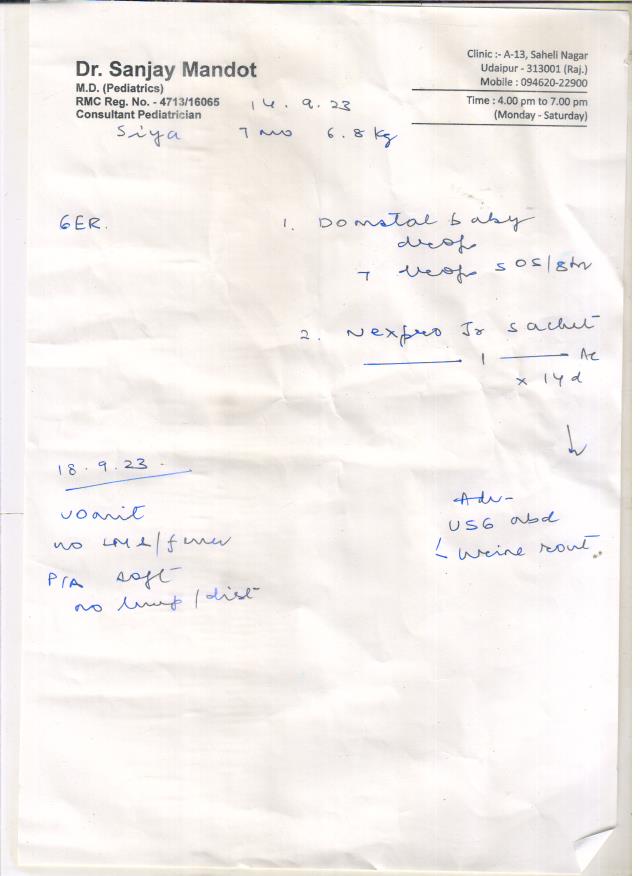 Dr. Sanjay Mandot
M.D. (Pediatrics)
RMC Reg. No. - 4713/16065
Consultant Pediatrician
Clinic :- A-13, Saheli Nagar
Udaipur - 313001 (Raj.)
Mobile : 094620-22900
Time : 4.00 pm to 7.00 pm
(Monday - Saturday)
14.9.23
Siya 7 mo 6.8 kg
GER.
1. Domstal baby
drop
7 drops SOS/8hr
2. Nexpro Jr sachet
1 Ac
x 14d
18.9.23.
vomit
no /fever
P/A soft
no lump/dist
Adv-
USG abd
urine rout..